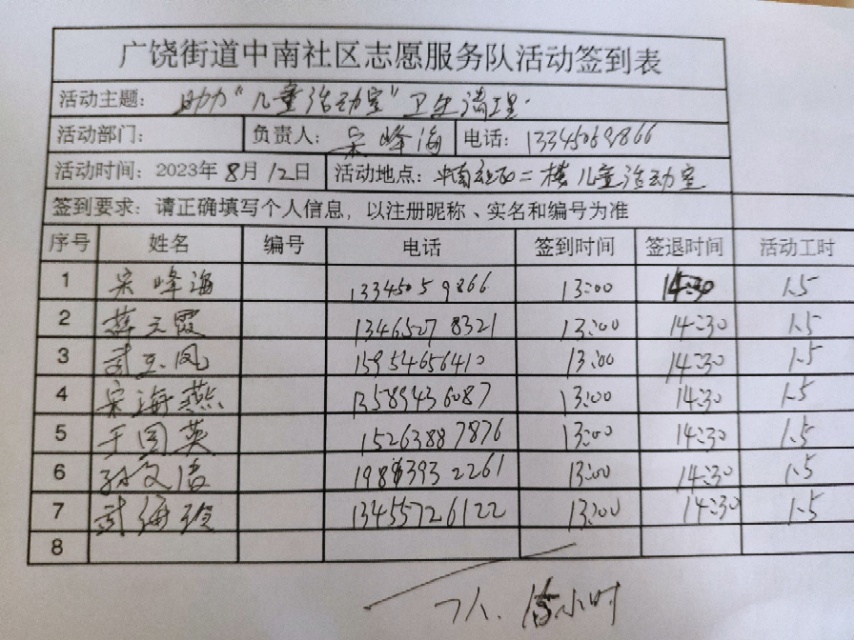 广饶街道中南社区志愿服务队活动签到表
活动主题: 助力"儿童活动室"卫生清理.
活动部门: 负责人: 宋峰海 电话: 13345069866
活动时间: 2023年8月12日 活动地点: 中南社区二楼儿童活动室
签到要求: 请正确填写个人信息, 以注册昵称、实名和编号为准
序号 姓名 编号 电话 签到时间 签退时间 活动工时
1 宋峰海 13345059866 13:00 14:30 1.5
2 薛云霞 13465278321 13:00 14:30 1.5
3 武玉凤 15954656410 13:00 14:30 1.5
4 宋海燕 13589436087 13:00 14:30 1.5
5 于国英 15263887876 13:00 14:30 1.5
6 孙文 13:00 14:30 1.5
7 武海 13455726122 13:00 14:30 1.5
8
7人. 小时